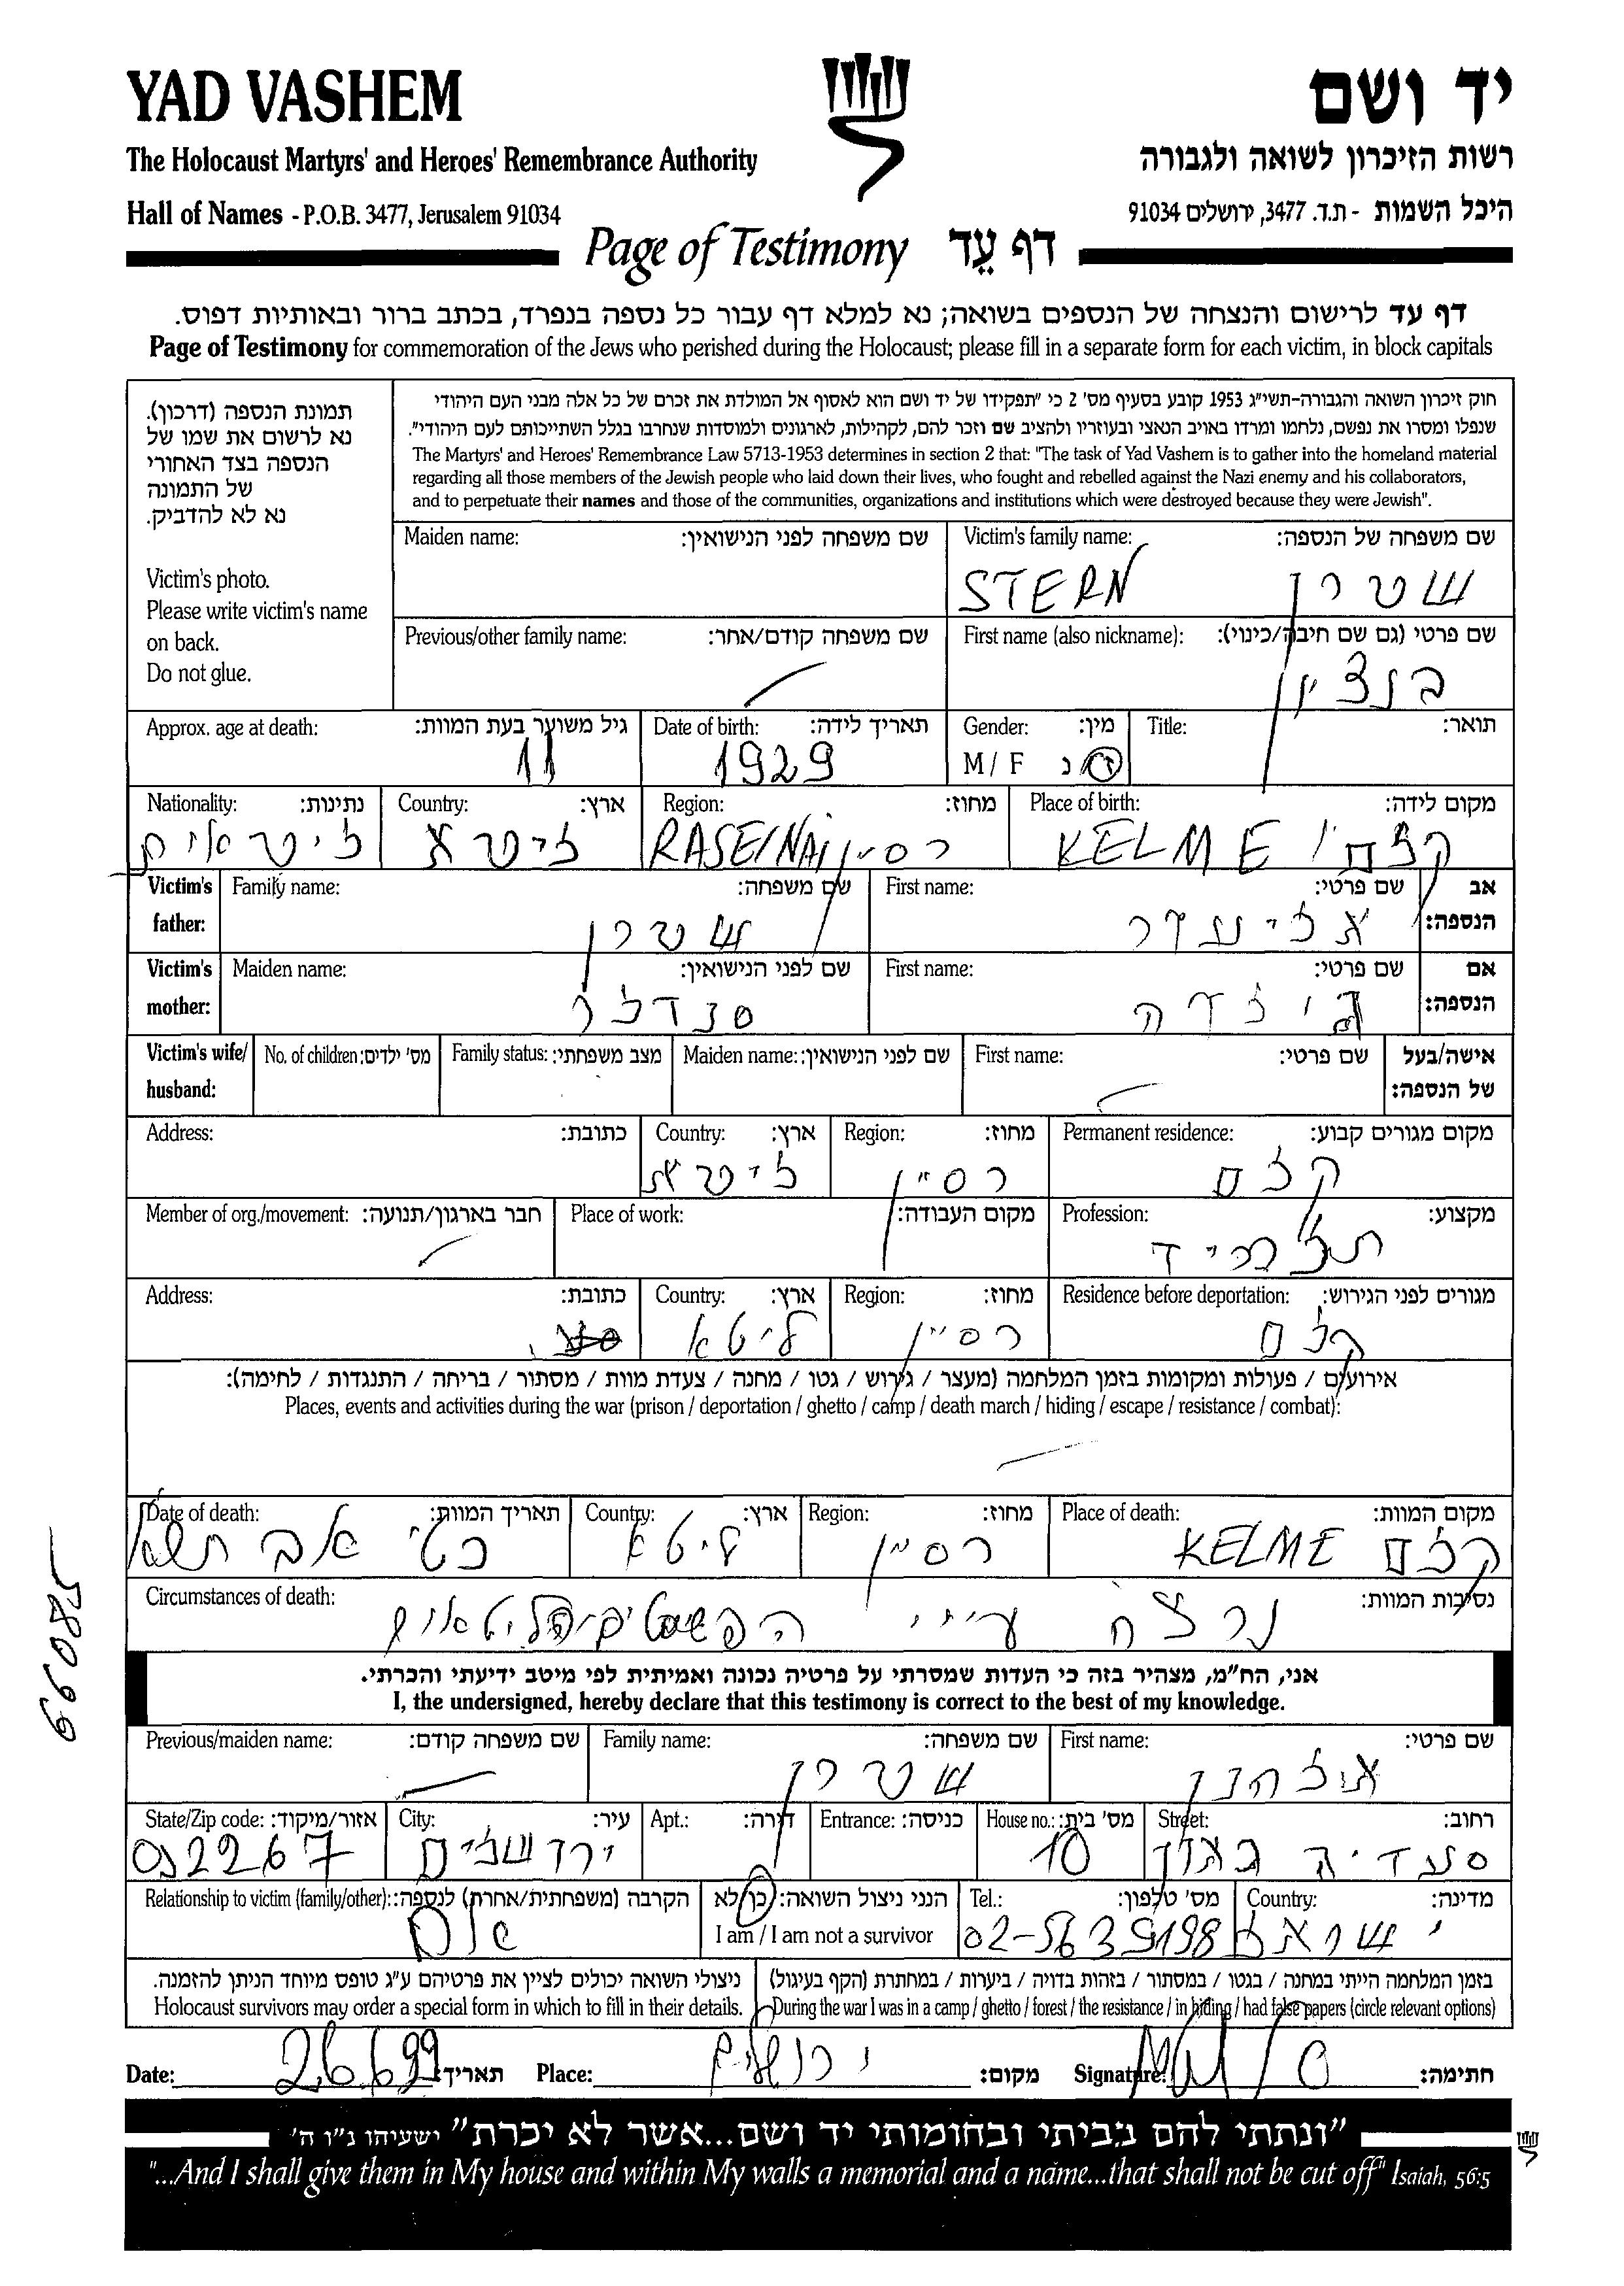 YAD VASHEM
יד ושם
The Holocaust Martyrs' and Heroes' Remembrance Authority
רשות הזיכרון לשואה ולגבורה
Hall of Names - P.O.B. 3477, Jerusalem 91034
היכל השמות - ת.ד. 3477, ירושלים 91034
Page of Testimony דף עֵד
דף עד לרישום והנצחה של הנספים בשואה; נא למלא דף עבור כל נספה בנפרד, בכתב ברור ובאותיות דפוס.
Page of Testimony for commemoration of the Jews who perished during the Holocaust; please fill in a separate form for each victim, in block capitals
תמונת הנספה (דרכון).
נא לרשום את שמו של
הנספה בצד האחורי
של התמונה
נא לא להדביק.
Victim's photo.
Please write victim's name
on back.
Do not glue.
חוק זיכרון השואה והגבורה-תשי"ג 1953 קובע בסעיף מס' 2 כי "תפקידו של יד ושם הוא לאסוף אל המולדת את זכרם של כל אלה מבני העם היהודי
שנפלו ומסרו את נפשם, נלחמו ומרדו באויב הנאצי ובעוזריו ולהציב שם וזכר להם, לקהילות, לארגונים ולמוסדות שנחרבו בגלל השתייכותם לעם היהודי".
The Martyrs' and Heroes' Remembrance Law 5713-1953 determines in section 2 that: "The task of Yad Vashem is to gather into the homeland material
regarding all those members of the Jewish people who laid down their lives, who fought and rebelled against the Nazi enemy and his collaborators,
and to perpetuate their names and those of the communities, organizations and institutions which were destroyed because they were Jewish".
Maiden name: שם משפחה לפני הנישואין:
Victim's family name: שם משפחה של הנספה:
STERN שטרן
Previous/other family name: שם משפחה קודם/אחר:
First name (also nickname): שם פרטי (גם שם חיבה/כינוי):
בנציון
Approx. age at death: גיל משוער בעת המוות:
11
Date of birth: תאריך לידה:
1929
Gender: מין:
M / F ז/נ
Title: תואר:
Nationality: נתינות:
ליטאית
Country: ארץ:
ליטא
Region: מחוז:
RASEINAI רסיין
Place of birth: מקום לידה:
KELME קלם
Victim's father: Family name: שם משפחה:
שטרן
First name: שם פרטי: אב הנספה:
אליעזר
Victim's mother: Maiden name: שם לפני הנישואין:
סנדלר
First name: שם פרטי: אם הנספה:
Victim's wife/husband: No. of children: מס' ילדים:
Family status: מצב משפחתי:
Maiden name: שם לפני הנישואין:
First name: שם פרטי: אישה/בעל של הנספה:
Address: כתובת:
Country: ארץ:
ליטא
Region: מחוז:
רסיין
Permanent residence: מקום מגורים קבוע:
קלם
Member of org./movement: חבר בארגון/תנועה:
Place of work: מקום העבודה:
Profession: מקצוע:
תלמיד
Address: כתובת:
Country: ארץ:
ליטא
Region: מחוז:
רסיין
Residence before deportation: מגורים לפני הגירוש:
קלם
אירועים / פעולות ומקומות בזמן המלחמה (מעצר / גירוש / גטו / מחנה / צעדת מוות / מסתור / בריחה / התנגדות / לחימה):
Places, events and activities during the war (prison / deportation / ghetto / camp / death march / hiding / escape / resistance / combat):
Date of death: תאריך המוות:
אב תשא
Country: ארץ:
ליטא
Region: מחוז:
רסיין
Place of death: מקום המוות:
KELME קלם
Circumstances of death: נסיבות המוות:
נרצח ע"י
אני, הח"מ, מצהיר בזה כי העדות שמסרתי על פרטיה נכונה ואמיתית לפי מיטב ידיעתי והכרתי.
I, the undersigned, hereby declare that this testimony is correct to the best of my knowledge.
Previous/maiden name: שם משפחה קודם:
Family name: שם משפחה:
שטרן
First name: שם פרטי:
אלחנן
State/Zip code: אזור/מיקוד:
City: עיר:
ירושלים
Apt.: דירה:
Entrance: כניסה:
House no.: מס' בית:
10
Street: רחוב:
סעדיה גאון
Relationship to victim (family/other): הקרבה (משפחתית/אחרת) לנספה:
אח
הנני ניצול השואה: כן/לא
I am / I am not a survivor
Tel.: מס' טלפון:
02-5639198
Country: מדינה:
ישראל
ניצולי השואה יכולים לציין את פרטיהם ע"ג טופס מיוחד הניתן להזמנה.
Holocaust survivors may order a special form in which to fill in their details.
בזמן המלחמה הייתי במחנה / בגטו / במסתור / בזהות בדויה / ביערות / במחתרת (הקף בעיגול)
During the war I was in a camp / ghetto / forest / the resistance / in hiding / had false papers (circle relevant options)
Date: 26.6.99 תאריך:
Place: ירושלים מקום:
Signature: חתימה:
"ונתתי להם בביתי ובחומותי יד ושם...אשר לא יכרת" ישעיהו נ"ו ה'
"...And I shall give them in My house and within My walls a memorial and a name...that shall not be cut off" Isaiah, 56:5
66085